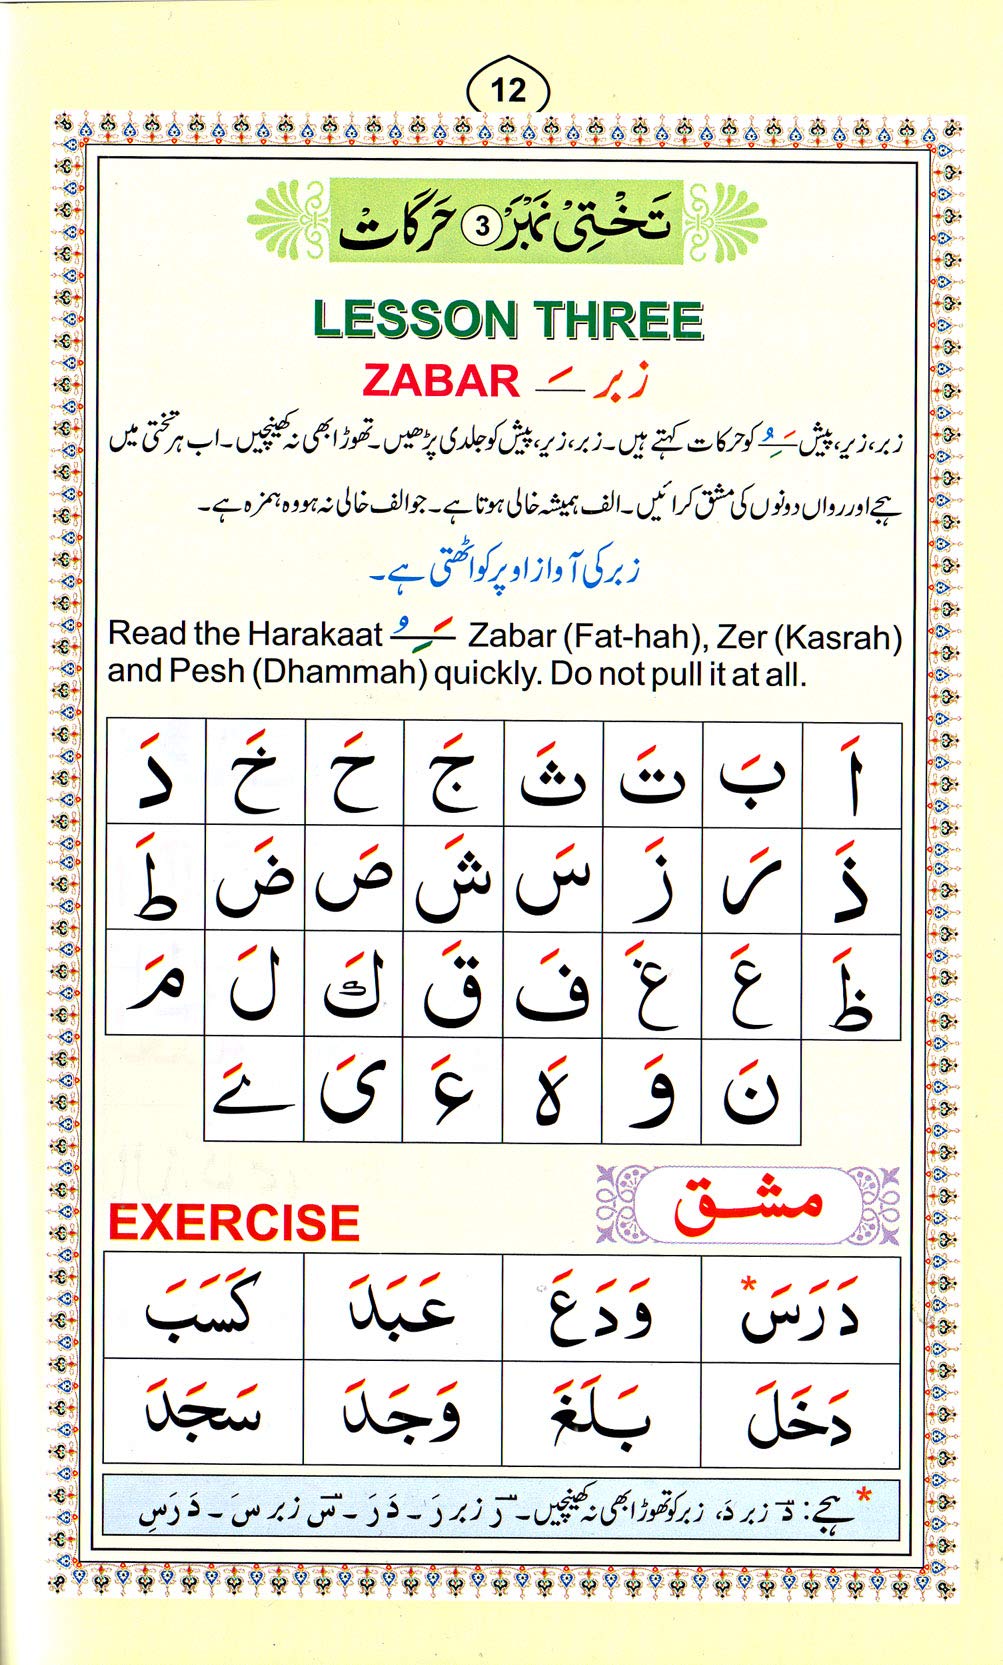 12
تَخْتِیْ نَمْبَرْ 3 حَرَکَاتْ
LESSON THREE
ZABAR ــَـ زبر
زبر، زیر، پیش ــَـِـُـ کو حرکات کہتے ہیں۔ زبر، زیر، پیش کو جلدی پڑھیں۔ تھوڑا بھی نہ کھینچیں۔ اب ہر تختی میں
ہجے اور رواں دونوں کی مشق کرائیں۔ الف ہمیشہ خالی ہوتا ہے۔ جو الف خالی نہ ہو وہ ہمزہ ہے۔
زبر کی آواز اوپر کو اٹھتی ہے۔
Read the Harakaat ــَـِـُـ Zabar (Fat-hah), Zer (Kasrah)
and Pesh (Dhammah) quickly. Do not pull it at all.
اَ بَ تَ ثَ جَ حَ خَ دَ
ذَ رَ زَ سَ شَ صَ ضَ طَ
ظَ عَ غَ فَ قَ كَ لَ مَ
نَ وَ هَ ءَ یَ ےَ
EXERCISE مشق
دَرَسَ* وَدَعَ عَبَدَ كَسَبَ
دَخَلَ بَلَغَ وَجَدَ سَجَدَ
* ہجے: دٓ زبر دَ، زبر کو تھوڑا بھی نہ کھینچیں۔ رٓ زبر رَ۔ دَرَ۔ سٓ زبر س۔ دَرَسِ